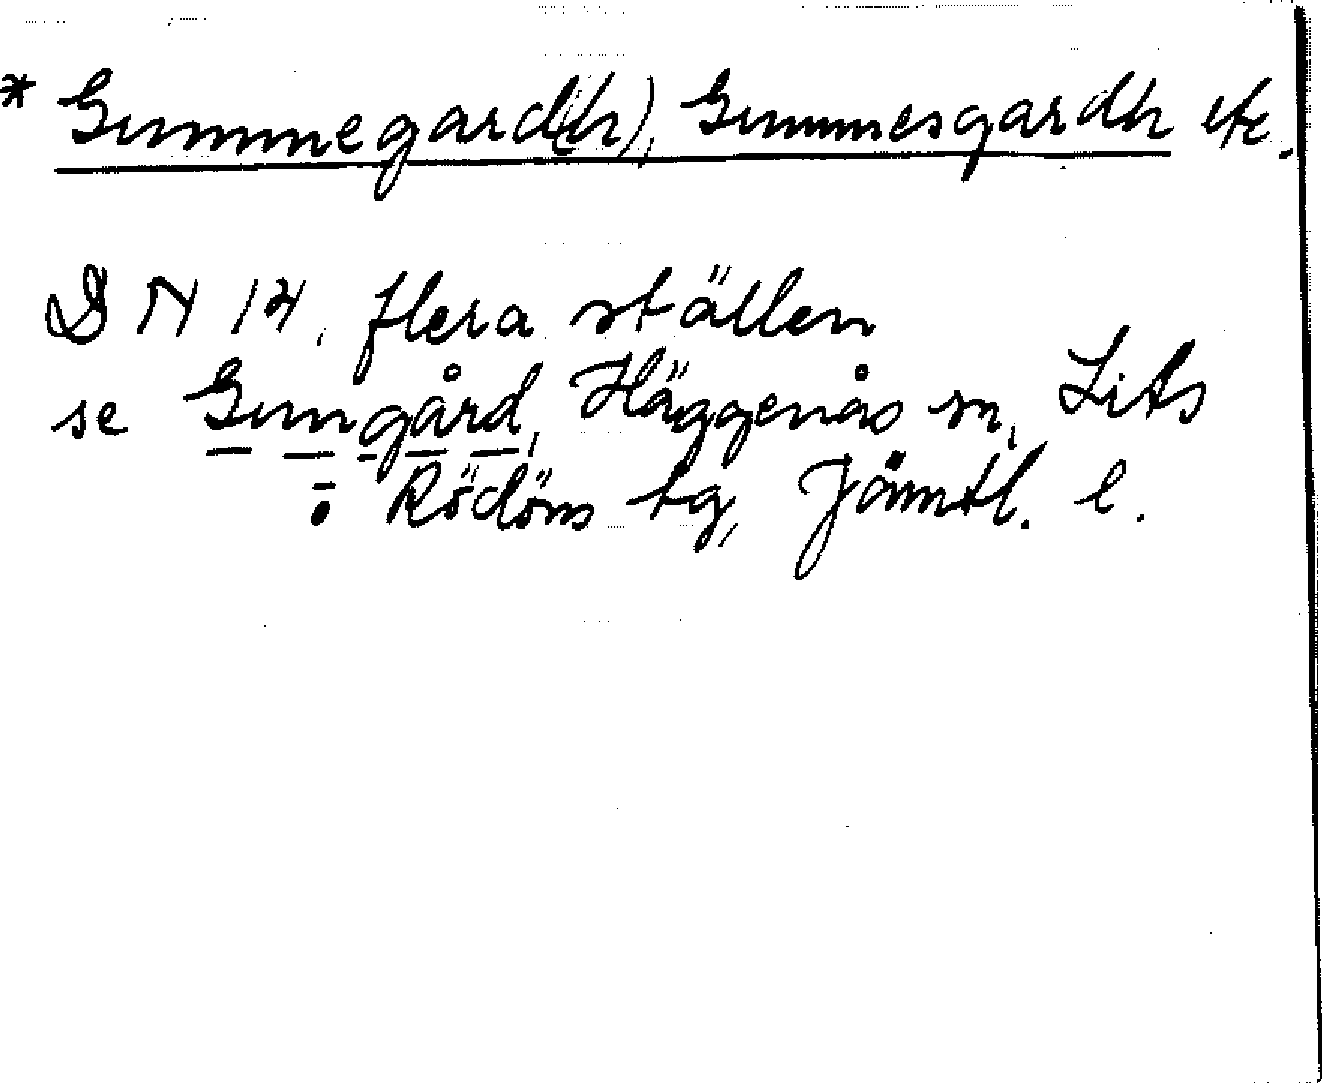 * Gummegard(h), Gummesgardh etc.
DN 14, flera ställen
se Gumgård, Häggenås sn, Lits
o. Rödöns tg, Jämtl. l.